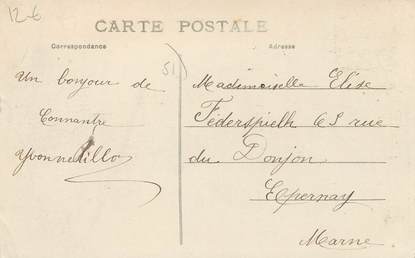 12 €
CARTE POSTALE
Correspondance
Adresse
51
Un bonjour de
Connantre
Yvonne Villo
Mademoiselle Elise
Féderspielh 63 rue
du Donjon
Epernay
Marne